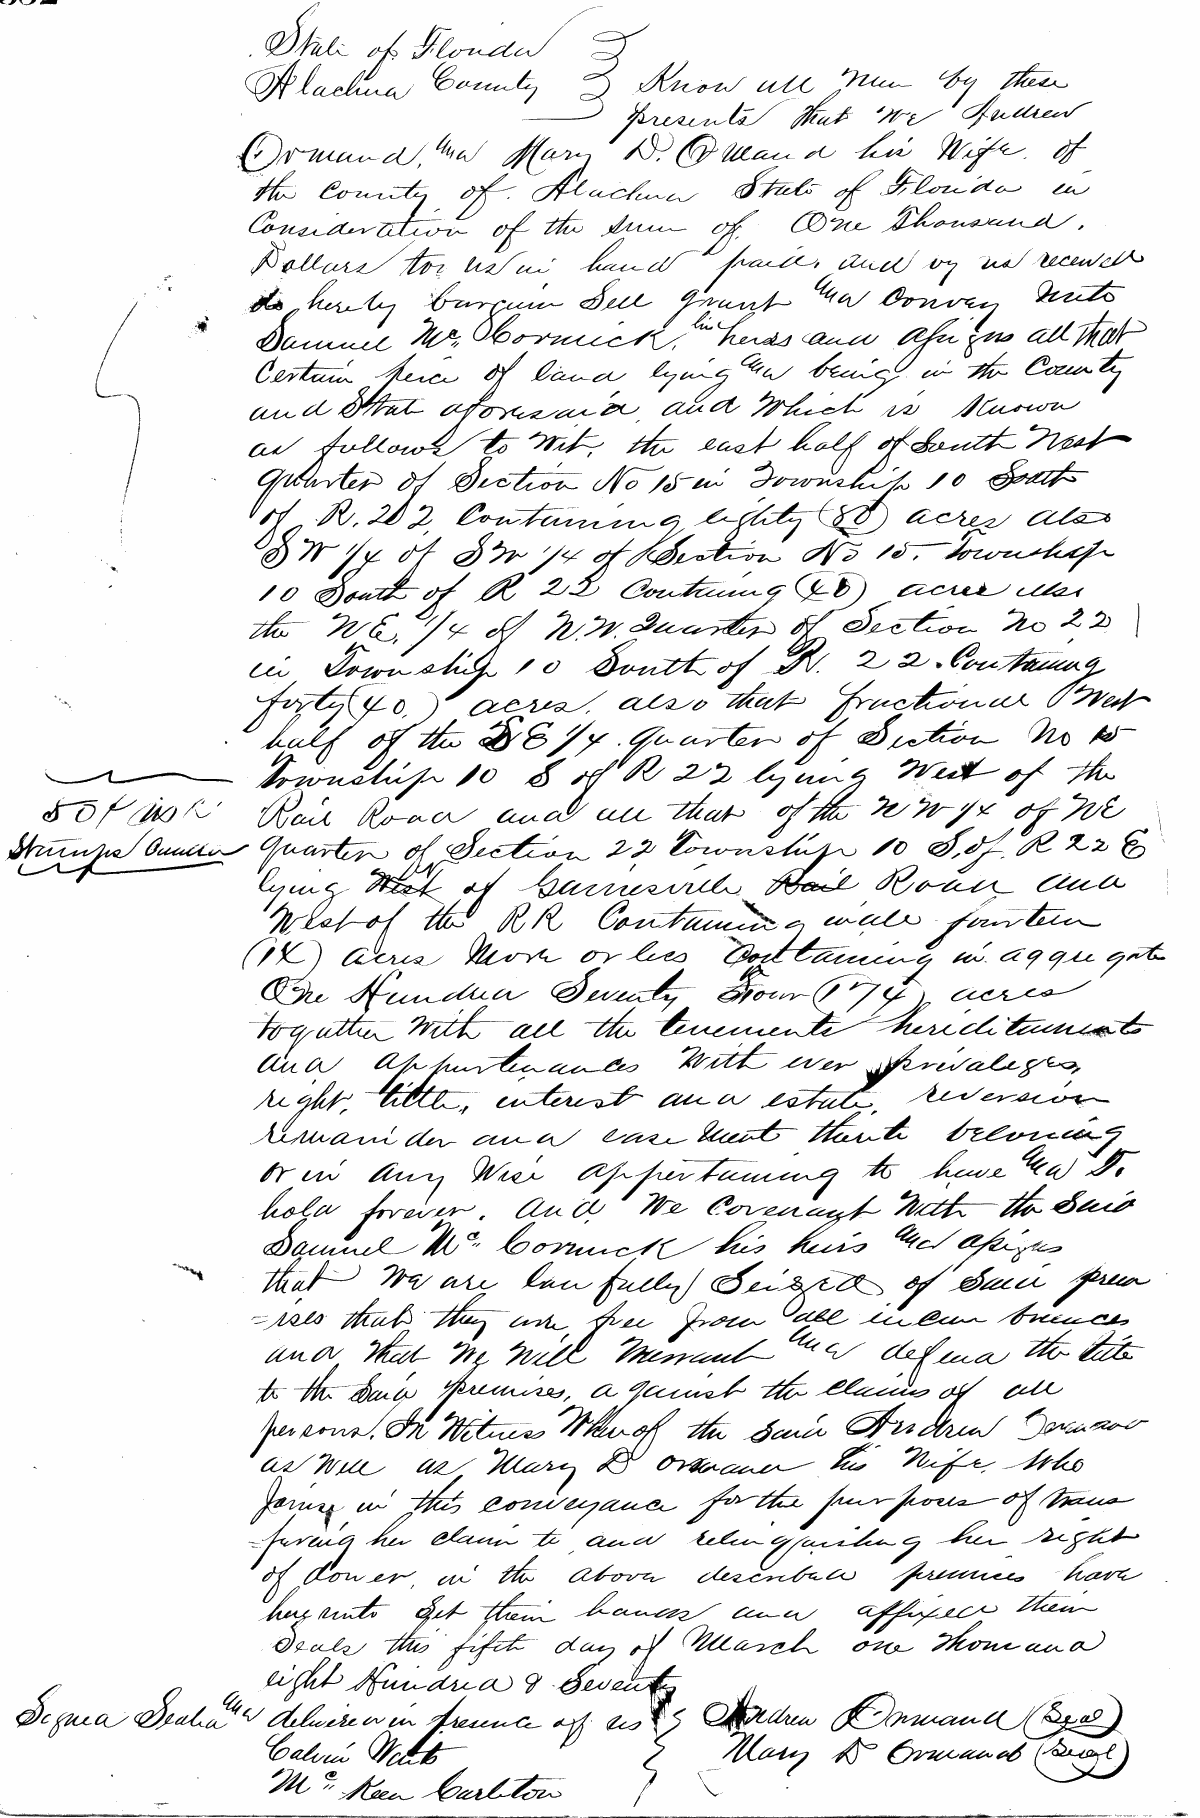 State of Florida
Alachua County } Know all Men by these
presents that we Andrew
Ormand, and Mary D. Ormand his Wife. of
the County of. Alachua State of Florida in
Consideration of the sum of. One Thousand.
Dollars to us in hand paid, and by us received
do hereby bargain Sell grant and Convey unto
Samuel Mc. Cormick, his heirs and assigns all that
Certain peice of land lying and being in the County
and State aforesaid, and Which is Known
as follows to Wit, the east half of South West
quarter of Section No 15 in Township 10 South
of R. 22, Containing eighty (80) acres also
SW 1/4 of SW 1/4 of Section No 15. Township
10 South of R 22 Containing (40) acres also
the NE, 1/4 of N.W. Quarter of Section No 22
in Township 10 South of R. 22. Containing
forty (40.) acres. also that fractional West
half of the SE 1/4. quarter of Section No 15
Township 10 S of R 22 lying West of the
Rail Road and all that of the NW 1/4 of NE
50 cts
Stamps
quarter of Section 22 Township 10 S. of. R 22 E
lying West of Gainesville Rail Road and
West of the RR Containing in all fourteen
(14) acres More or less Containing in aggregate
One Hundred Seventy Four (174) acres
togather With all the tenements hereditaments
and appurtenances With ever privaleges,
right, tittle, interest and estate, reversion
remainder and easement thereto belonging
or in any Wise appertaining to have and to
hold forever. And, We Covenant With the Said
Samuel Mc. Cormick his heirs and assigns
that We are lawfully Seized of Said prem
=ises that they are free from all incumbrances
and that We Will Warrant and defend the title
to the Said premises, against the claims of all
persons. In Witness Whereof the Said Andrew Ormand
as Well as Mary D Ormand his Wife, Who
Joins in this conveyance for the purposes of trans
=fering her claim to and relinquishing her right
of dower, in the above described premises have
hereunto Set their hands and affixed their
Seals this fifth day of March one Thousand
eight Hundred & Seventy
Signed Sealed and delivered in presence of us } Andrew Ormand (Seal)
Calvin Waits } Mary D Ormand (Seal)
Mc. Keen Carlton